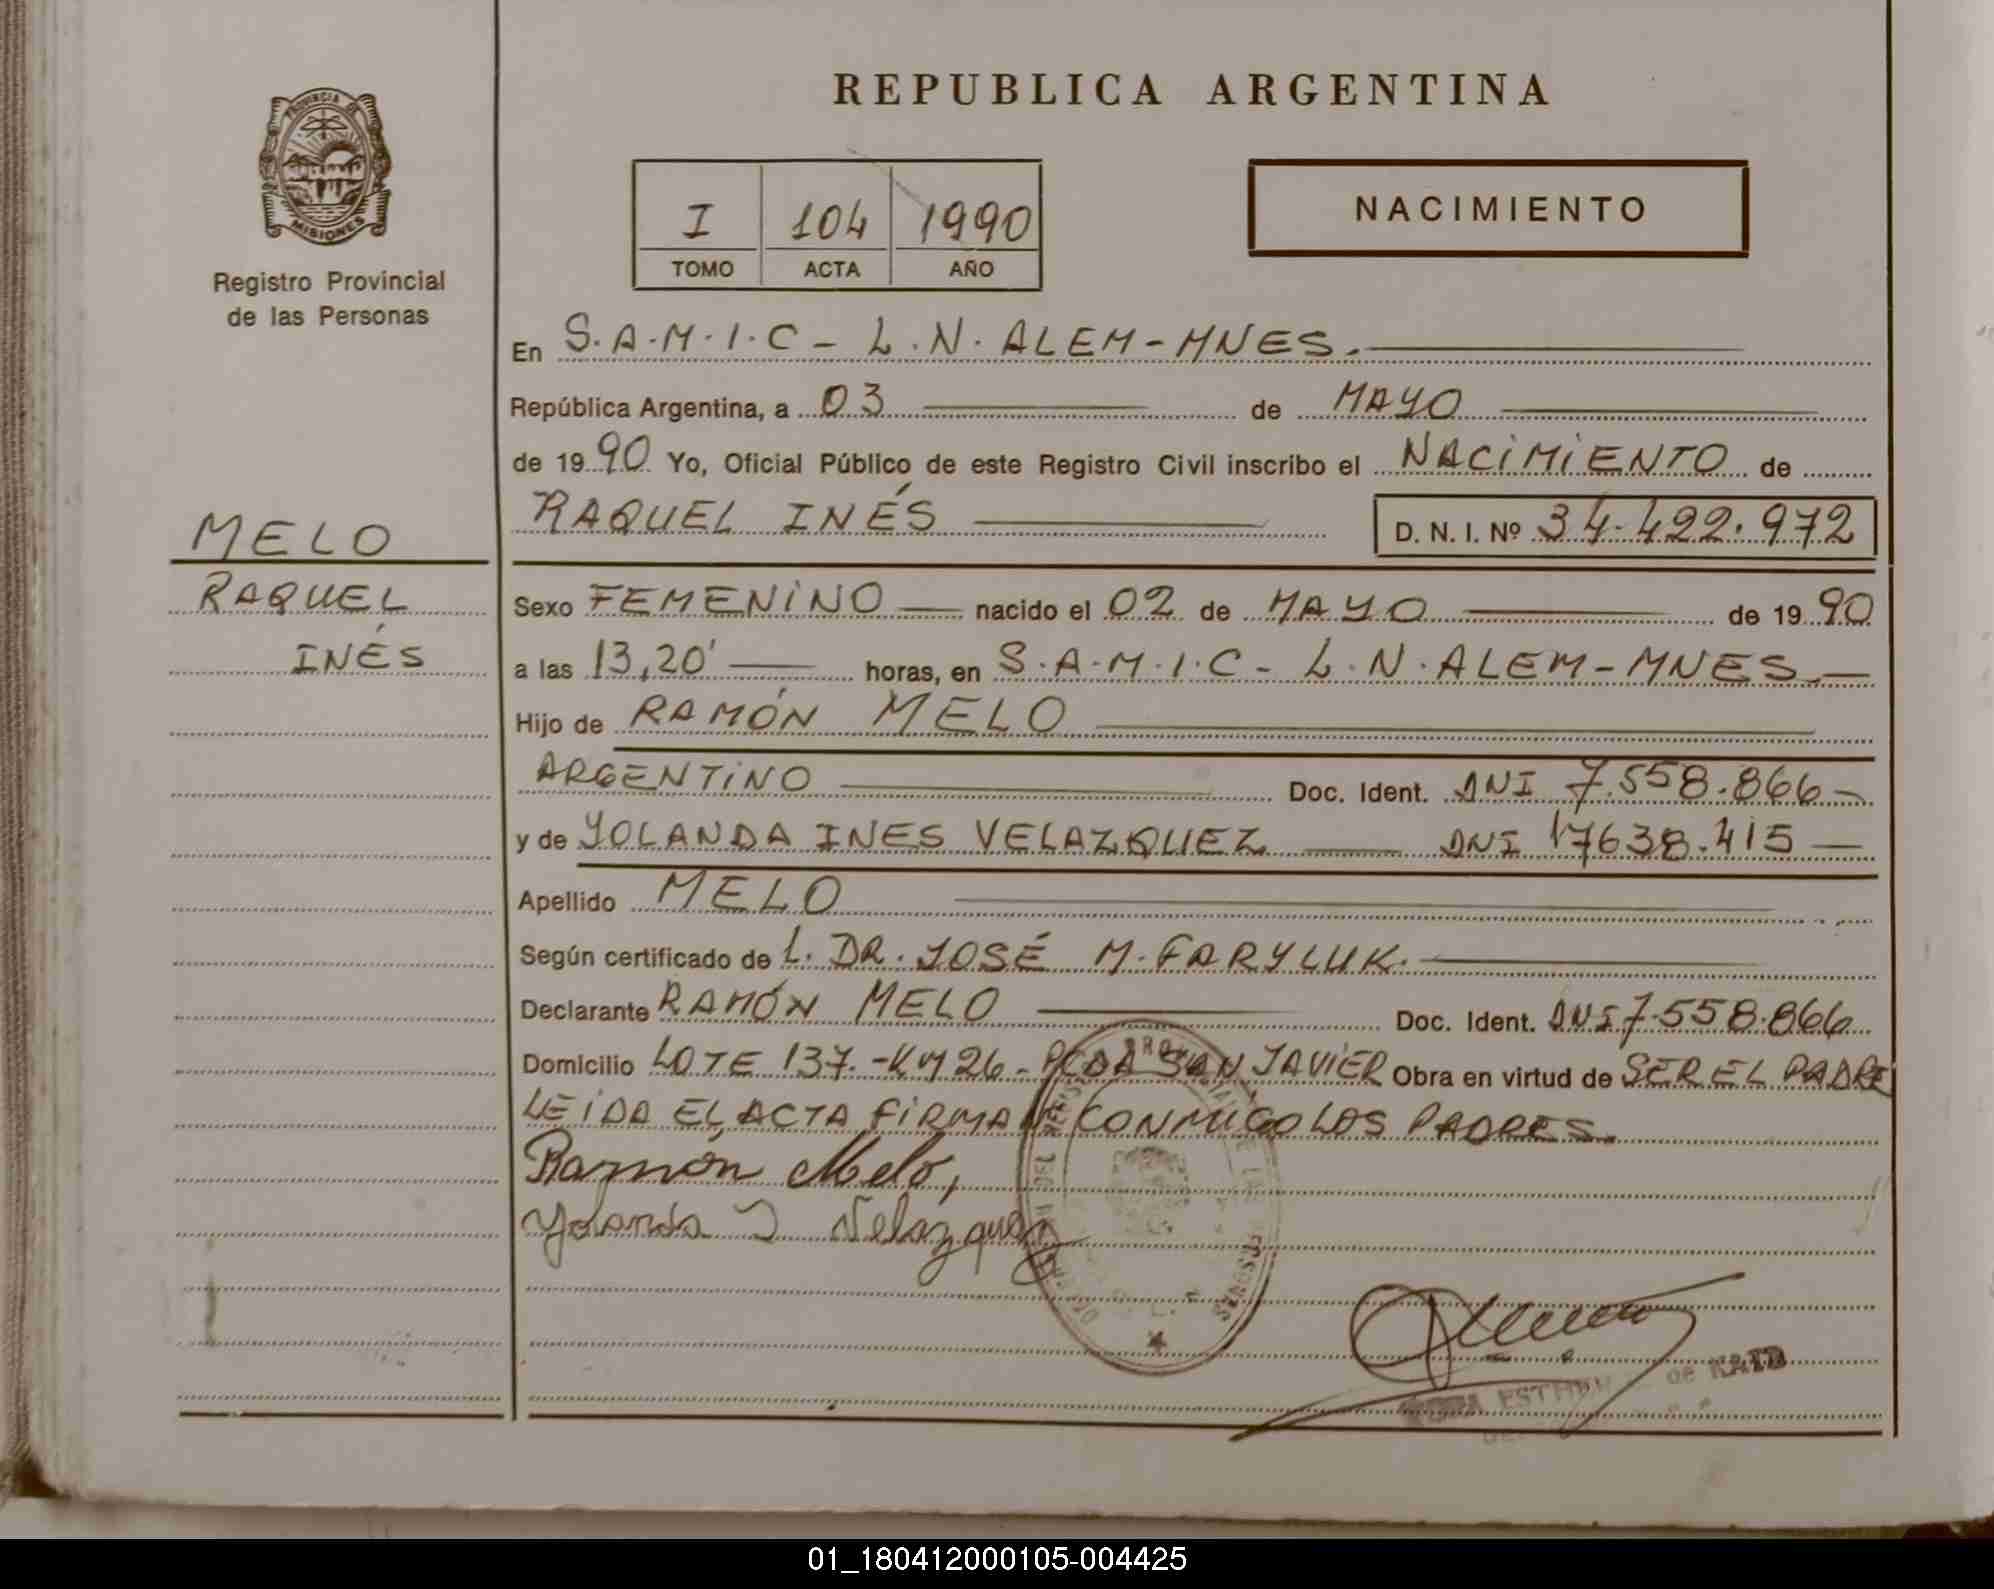 REPUBLICA ARGENTINA
PROVINCIA DE
MISIONES
Registro Provincial
de las Personas
I 104 1990
TOMO ACTA AÑO
NACIMIENTO
En S.A.M.I.C - L.N. ALEM-MNES.
República Argentina, a 03 de MAYO
de 1990 Yo, Oficial Público de este Registro Civil inscribo el NACIMIENTO de
RAQUEL INÉS D. N. I. Nº 34.422.972
MELO
RAQUEL
INÉS
Sexo FEMENINO nacido el 02 de MAYO de 1990
a las 13,20' horas, en S.A.M.I.C - L.N. ALEM-MNES
Hijo de RAMÓN MELO
ARGENTINO Doc. Ident. DNI 7.558.866
y de YOLANDA INES VELAZQUEZ DNI 17638.415
Apellido MELO
Según certificado de L. DR. JOSÉ M. FARYLUK.
Declarante RAMÓN MELO Doc. Ident. DNI 7.558.866
Domicilio LOTE 137.-KM 26- PCDA SAN JAVIER Obra en virtud de SER EL PADRE
LEIDA EL ACTA FIRMAN CONMIGO LOS PADRES.
Ramón Melo,
Yolanda I Velazquez
ESTHER de
01_180412000105-004425